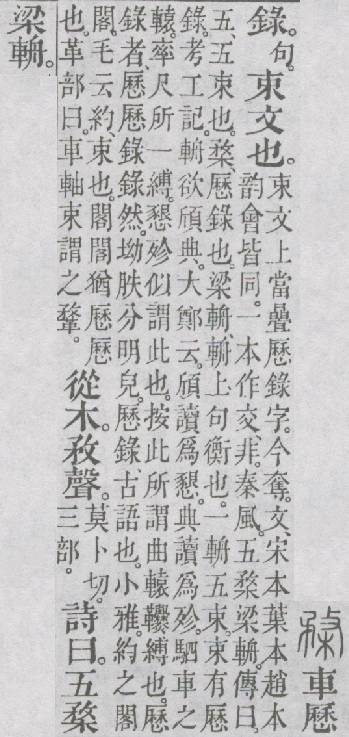 車歷
錄。句。束文也。
束文上當曡歷錄字。今奪。文、宋本葉本趙本
韵會皆同。一本作交、非。秦風。五楘梁輈。傳曰。
五、五束也。楘、歷錄也。梁輈、輈上句衡也。一輈五束。束有歷
錄。考工記。輈欲頎典。大鄭云。頎讀爲懇。典讀爲殄。駟車之
轅。率尺所一縛。懇殄似謂此也。按此所謂曲轅縛也。歷
錄者、歷歷錄錄然。坳胅分明皃。歷錄、古語也。小雅。約之閣
閣。毛云約束也。閣閣猶歷歷
也。革部曰。車軸束謂之鞪。
從木。敄聲。
莫卜切。
三部。
詩曰。五楘
梁輈。